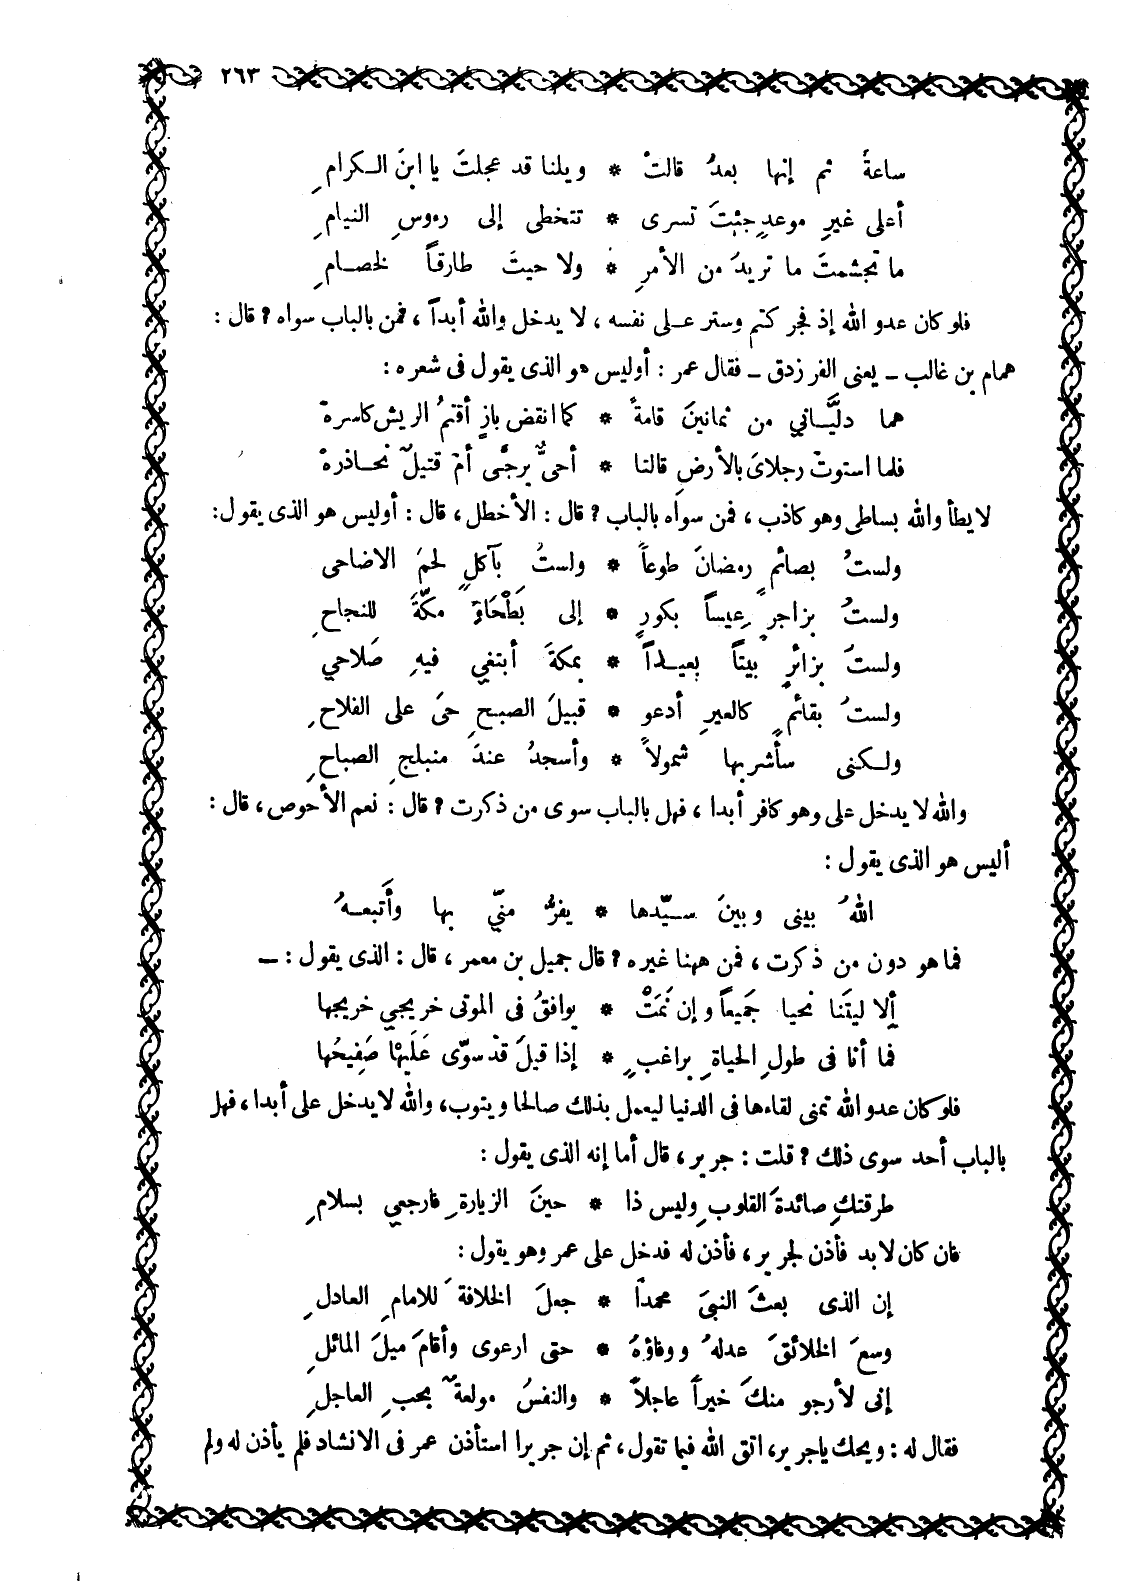 ٢٦٣
ساعةً ثم إنها بعدُ قالتْ * ويلنا قد عجلتَ يا ابنَ الكرامِ
أعلى غيرِ موعدٍ جئتَ تسرى * تتخطى إلى رءوسِ النيامِ
ما تجشمتَ ما تريدُ من الأمرِ * ولا جيتَ طارقاً لخصامِ
فلو كان عدو الله إذ فجر كتم وستر على نفسه ، لا يدخل والله أبداً ، فمن بالباب سواه ؟ قال :
همام بن غالب ـ يعنى الفرزدق ـ فقال عمر : أوليس هو الذى يقول فى شعره :
هما دلَّياني من ثمانينَ قامةً * كما انقض بازٍ أقتمُ الريش كاسرهْ
فلما استوتْ رجلاىَ بالأرضِ قالتا * أحىٌّ يرجَّى أمْ قتيلٌ نحاذرهْ
لا يطأ والله بساطى وهو كاذب ، فمن سواه بالباب ؟ قال : الأخطل ، قال : أوليس هو الذى يقول:
ولستُ بصائمٍ رمضانَ طوعاً * ولستُ بآكلٍ لحمَ الاضاحى
ولستُ بزاجرٍ عيساً بكورٍ * إلى بَطْحَاءِ مكّةَ للنجاحِ
ولستُ بزائرٍ بيتاً بعيداً * بمكةَ أبتغي فيهِ صَلاحي
ولستُ بقائمٍ كالعيرِ أدعو * قبيلَ الصبحِ حىَ على الفلاحِ
ولكنى سأشربها شمولاً * وأسجدُ عندَ منبلجِ الصباحِ
والله لا يدخل على وهو كافر أبدا ، فهل بالباب سوى من ذكرت ؟ قال : نعم الأحوص ، قال :
أليس هو الذى يقول :
اللهُ بينى وبينَ سيّدها * يفرُّ منّي بها وأَتبعهُ
فما هو دون من ذكرت ، فمن ههنا غيره ؟ قال جميل بن معمر ، قال : الذى يقول : ـ
ألا ليتَنا نحيا جَميعاً وإن نَمتْ * يوافقُ فى الموتى خريجي خريجها
فما أنا فى طولِ الحياةِ براغبٍ * إذا قيلَ قدْ سوّى عَلَيْها صَفِيحُها
فلو كان عدو الله تمنى لقاءها فى الدنيا ليعمل بذلك صالحا ويتوب، والله لا يدخل على أبدا ، فهل
بالباب أحد سوى ذلك ؟ قلت : جرير ، قال أما إنه الذى يقول :
طرقتكِ صائدةَ القلوبِ وليس ذا * حينَ الزيارةِ فارجعي بسلامِ
فان كان لا بد فأذن لجرير، فأذن له فدخل على عمر وهو يقول :
إن الذى بعثَ النبىَ محمداً * جعلَ الخلافةَ للامامِ العادلِ
وسعَ الخلائقَ عدلهُ ووفاؤهُ * حتى ارعوى وأقامَ ميلَ المائلِ
إنى لأرجو منكَ خيراً عاجلاً * والنفسُ مولعةٌ بحبِ العاجلِ
فقال له : ويحك يا جرير، اتق الله فيما تقول ، ثم إن جريرا استأذن عمر فى الانشاد فلم يأذن له ولم